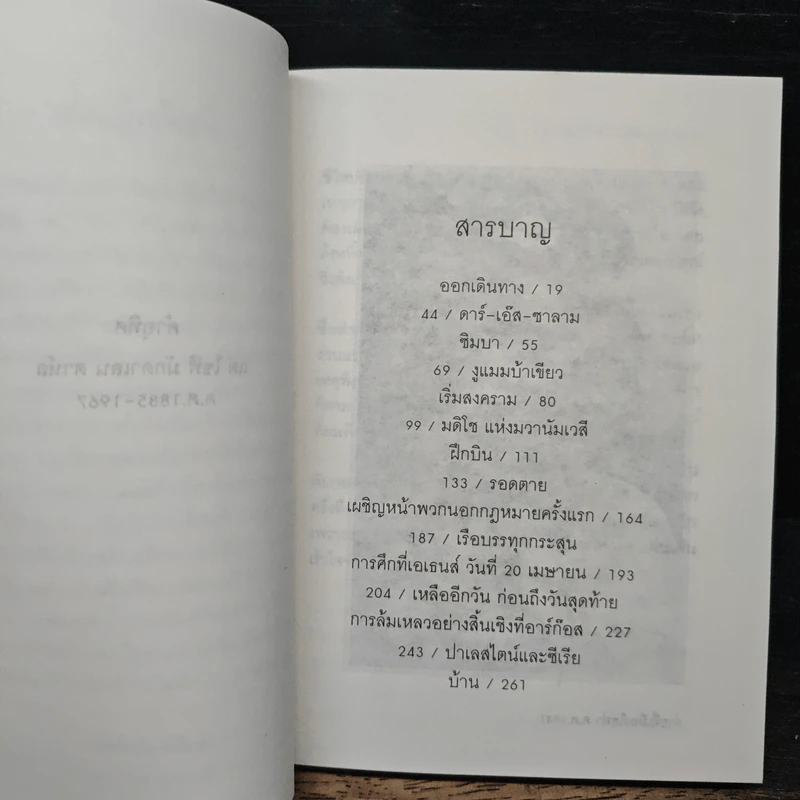 สารบาญ
ออกเดินทาง / 19
44 / ดาร์-เอ๊ส-ซาลาม
ซิมบา / 55
69 / งูแมมบ้าเขียว
เริ่มสงคราม / 80
99 / มดิโซ แห่งมวานัมเวสี
ฝึกบิน / 111
133 / รอดตาย
เผชิญหน้าพวกนอกกฎหมายครั้งแรก / 164
187 / เรือบรรทุกกระสุน
การศึกที่เอเธนส์ วันที่ 20 เมษายน / 193
204 / เหลืออีกวัน ก่อนถึงวันสุดท้าย
การล้มเหลวอย่างสิ้นเชิงที่อาร์ก๊อส / 227
243 / ปาเลสไตน์และซีเรีย
บ้าน / 261